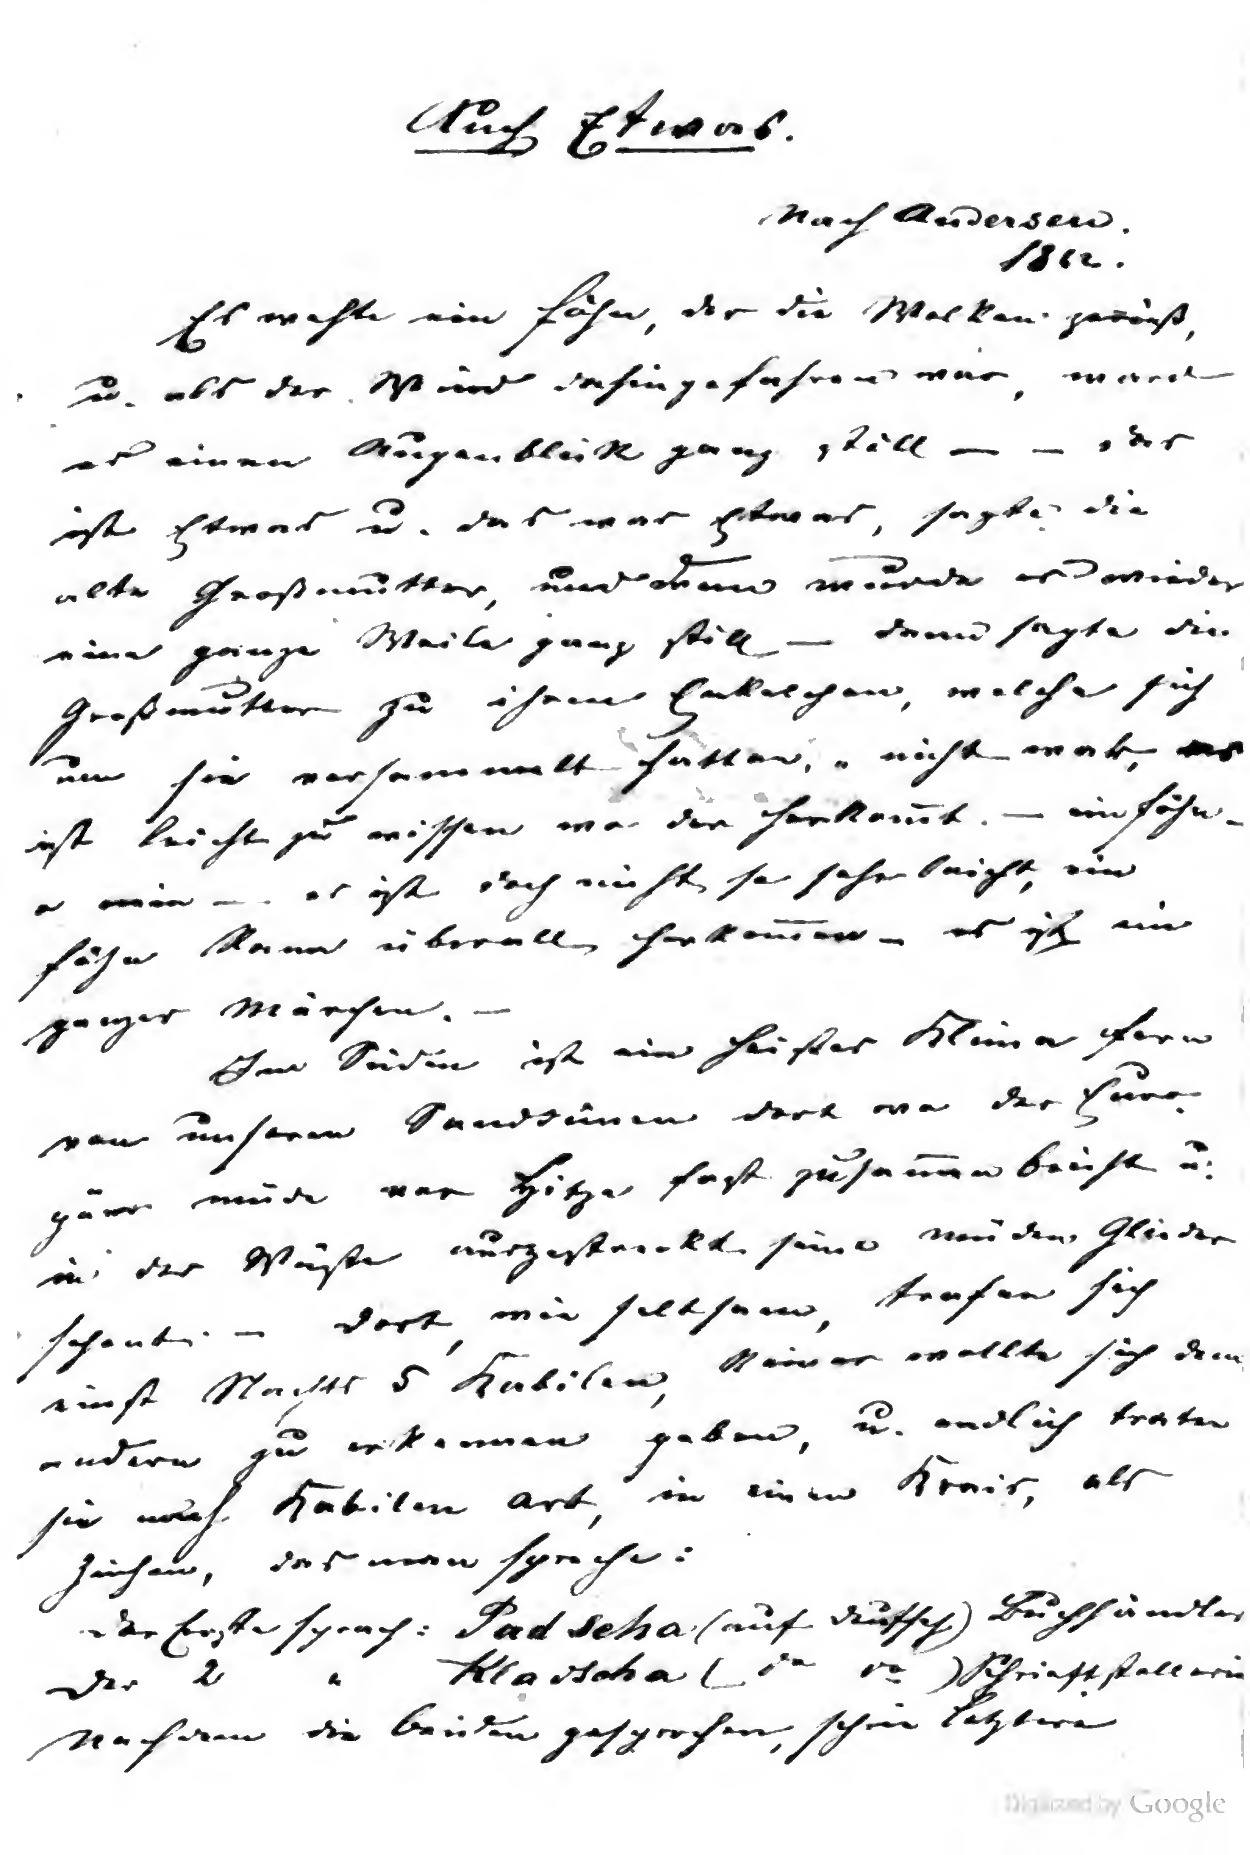 Auch Etwas.
Nach Andersen.
1862.
Es wehte ein Föhn, der die Wolken zerriß,
u. als der Wind dahingefahren war, ward
es einen Augenblick ganz still — — das
ist Etwas u. das war Etwas, sagte die
alte Großmutter, und dann wurde es wieder
eine ganze Weile ganz still — dann sagte die
Großmutter zu ihren Enkelchen, welche sich
um sie versammelt hatten, „ nicht wahr, es
ist leicht zu wissen wo der herkommt. — ein Föhn —
o nein — es ist doch nicht so sehr leicht, ein
Föhn kann überall herkommen — es ist ein
ganzes Märchen. —
Im Süden ist ein heißes Klima fern
von unseren Sanddünen dort wo der Euro-
päer müde vor Hitze fast zusammen bricht u.
in der Wüste ausgestreckt seine müden Glieder
schont. — dort, wie seltsam, trafen sich
einst Nachts 5 Kabilen, keiner wollte sich dem
andern zu erkennen geben, u. endlich traten
sie nach Kabilen Art, in einen Kreis, als
Zeichen, das man spreche:
der Erste sprach: Padscha (auf deutsch) Buchhändler
Der 2 " Kladscha ( do do ) Schriftstellerin
Nachdem die beiden gesprochen, schrie Letztere
Digitized by Google